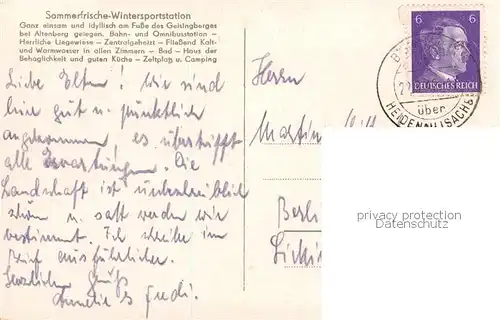 Sommerfrische-Wintersportstation
Ganz einsam und idyllisch am Fuße des Geisingberges
bei Altenberg gelegen. Bahn- und Omnibusstation -
Herrliche Liegewiese - Zentralgeheizt - Fließend Kalt-
und Warmwasser in allen Zimmern - Bad - Haus der
Behaglichkeit und guten Küche - Zeltplatz u. Camping
Liebe Eltern! Wir sind
hier gut u. pünktlich
angekommen! es übertrifft
alle Erwartungen. Die
Landschaft ist unbeschreiblich
schön u. satt werden wir
bestimmt. Ich schreibe im
Brief ausführlicher.
Herzliche Grüße
Fredi.
Herrn
Martin
Berli
6 6
DEUTSCHES REICH
über
HEIDENAU (SACHS
privacy protection
Datenschutz